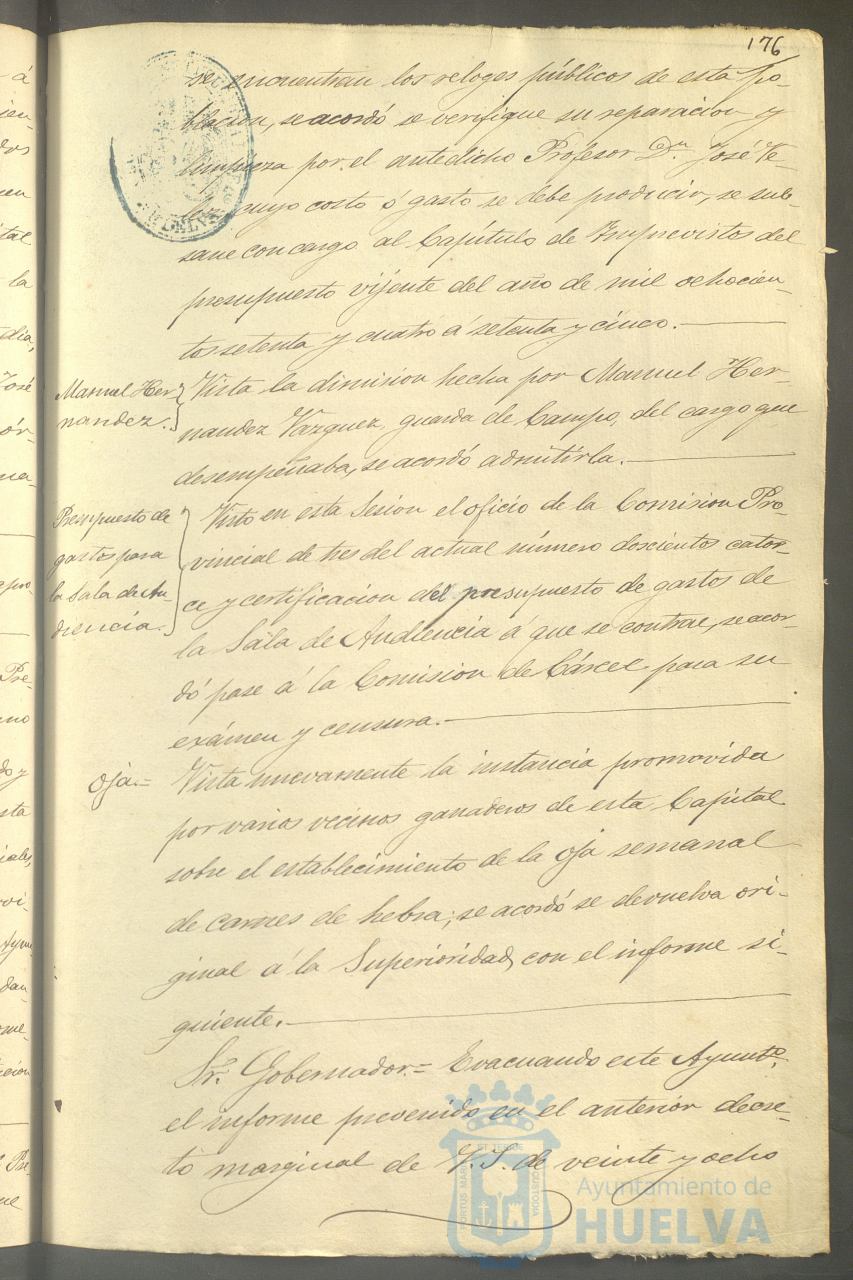 176
se encuentran los reloges públicos de esta po-
blacion, se acordó se verifique su reparacion y
limpieza por el antedicho Profesor Dn. José Ve-
cuyo costo ó gasto se debe producir, se sub-
sane con cargo al Capítulo de Imprevistos del
presupuesto vijente del año de mil ochocien-
tos setenta y cuatro á setenta y cinco.
Manuel Her
nandez.
Vista la dimision hecha por Manuel Her-
nandez Vazquez, guarda de Campo, del cargo que
desempeñaba, se acordó admitirla.
Presupuesto de
gastos para
la Sala de Au
diencia.
Visto en esta Sesion el oficio de la Comision Pro-
vincial de tres del actual número doscientos cator-
ce y certificacion del presupuesto de gastos de
la Sala de Audiencia á que se contrae, se acor-
dó pase á la Comision de Cárcel para su
exámen y censura.
Oja.=
Vista nuevamente la instancia promovida
por varios vecinos ganaderos de esta Capital
sobre el establecimiento de la oja semanal
de carnes de hebra; se acordó se devuelva ori-
ginal á la Superioridad, con el informe si-
guiente.
Sr. Gobernador.= Evacuando este Ayunto.
el informe prevenido en el anterior decre-
to marginal de V.S. de veinte y ocho
PORTUS MARIS ET TERRE CUSTODIA
Ayuntamiento de
HUELVA